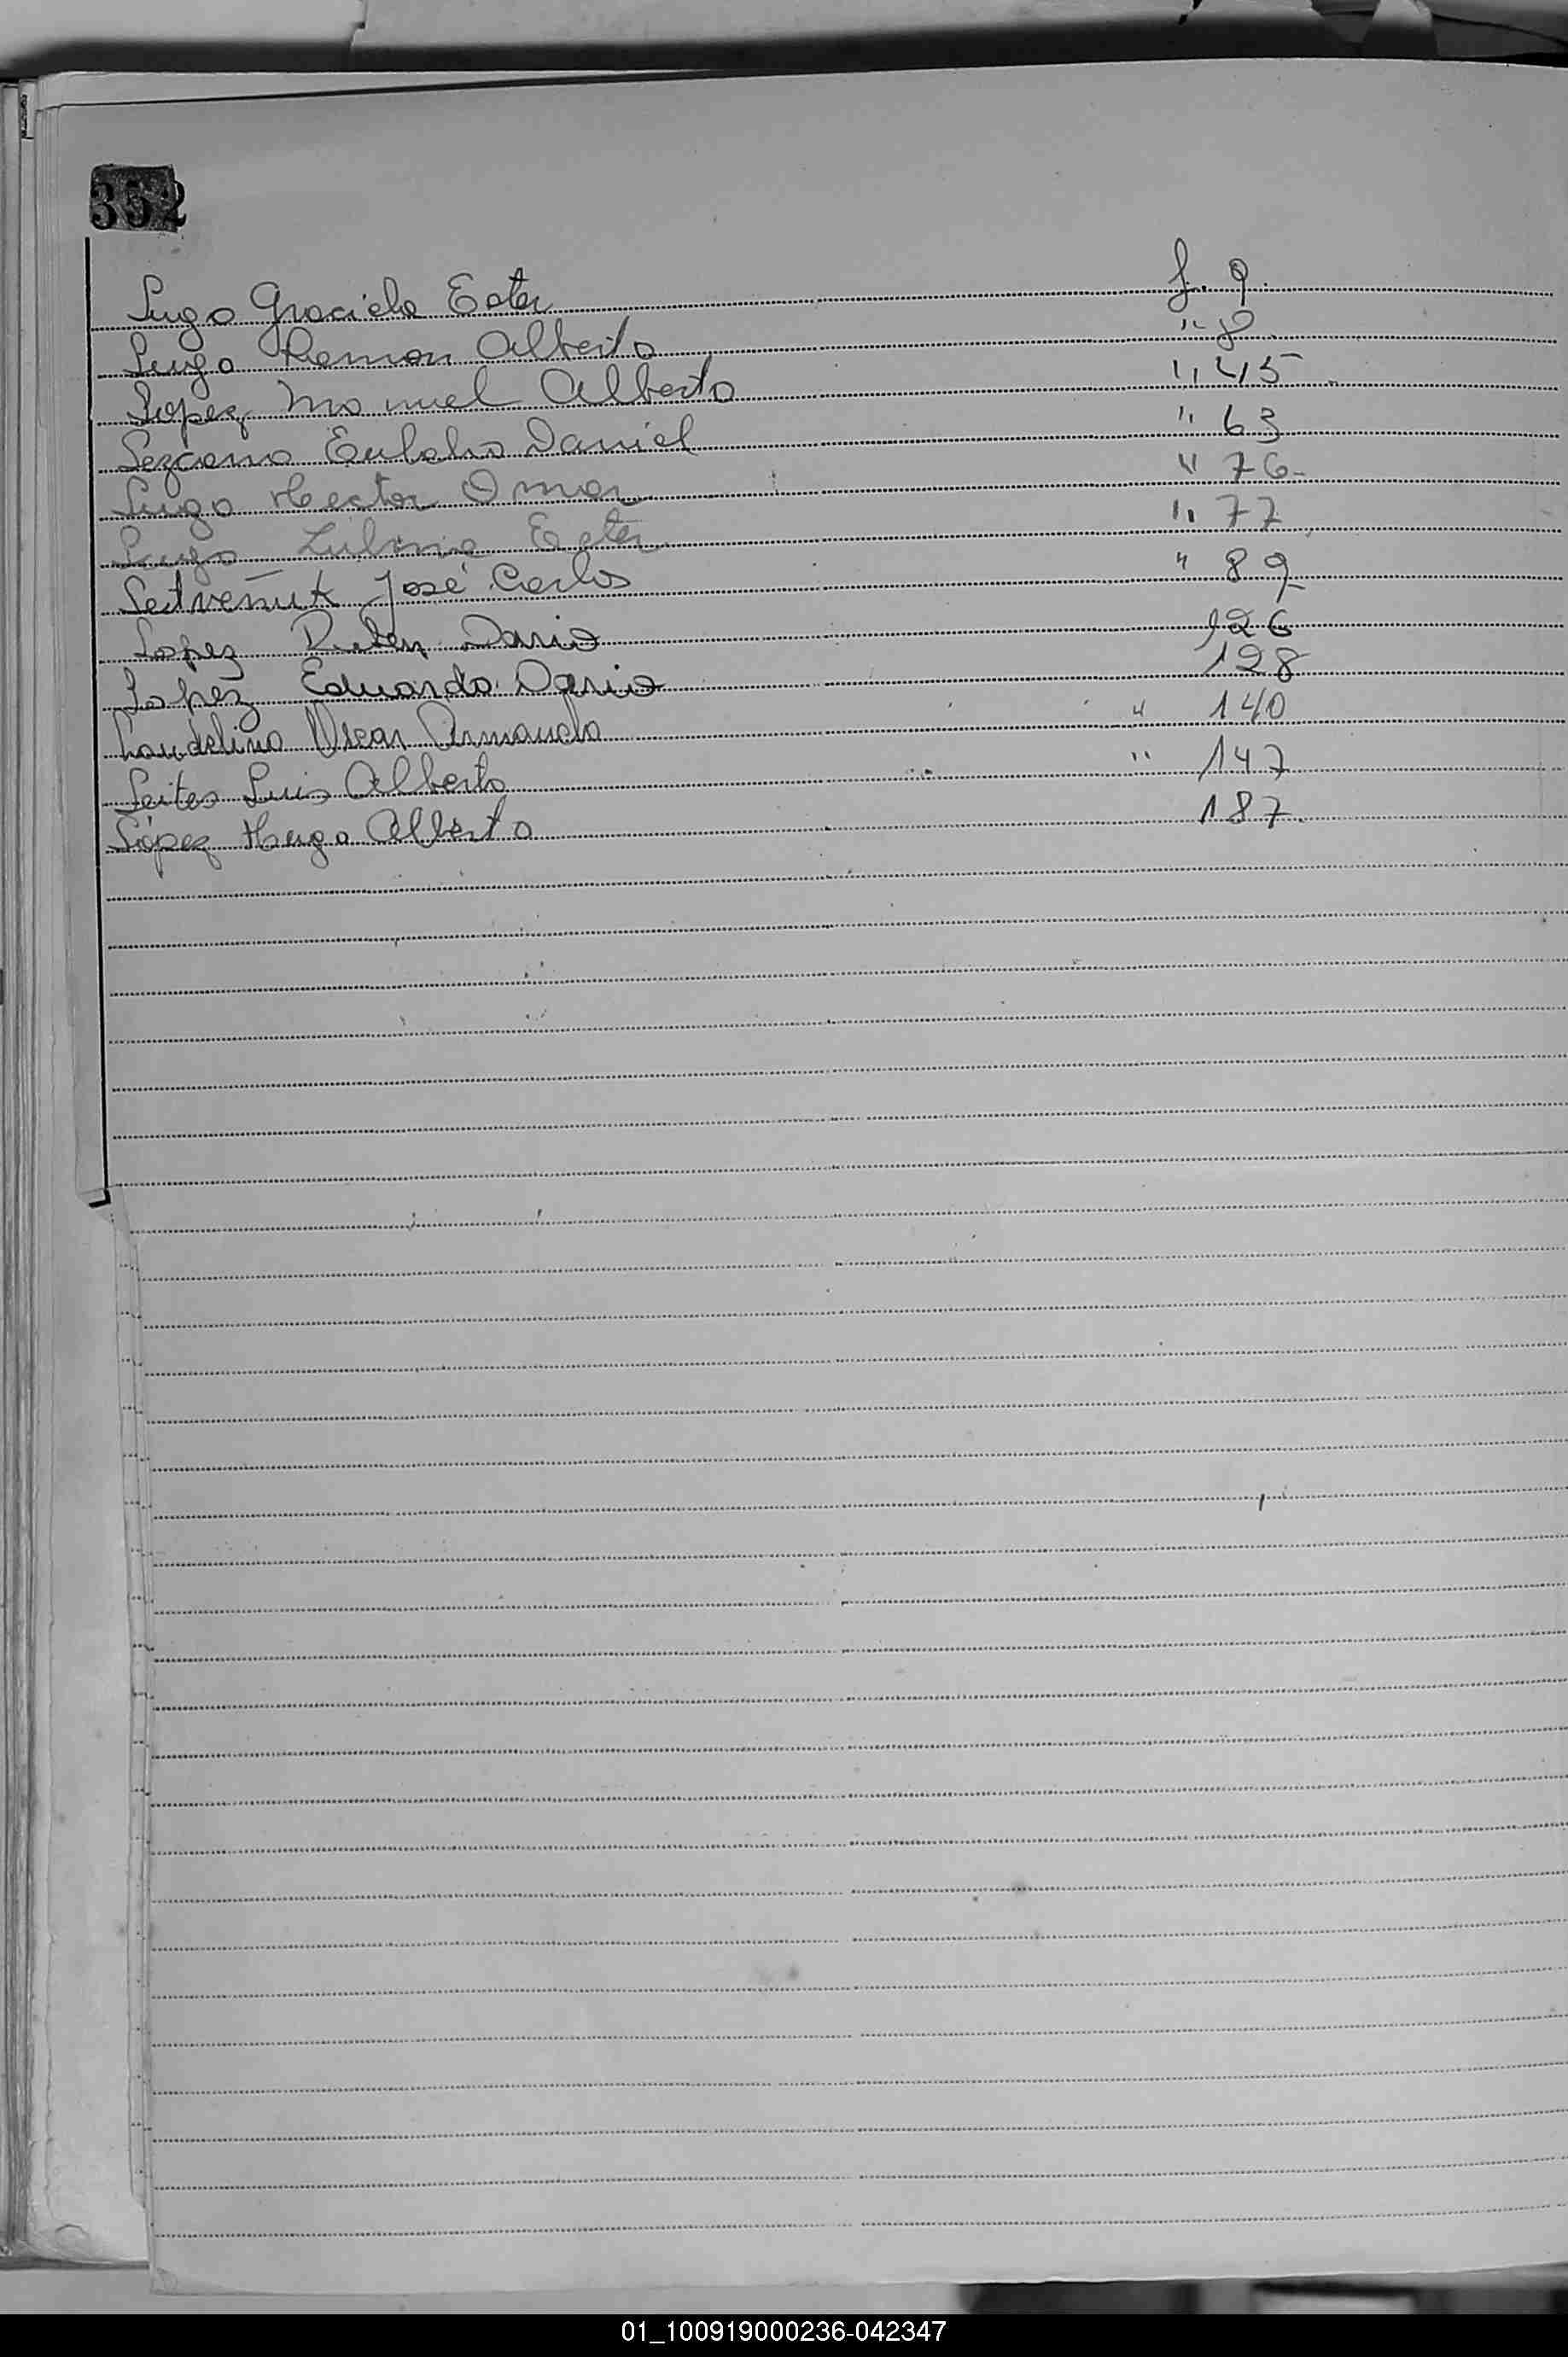 352
Lugo Graciela Ester f. 9.
Lugo Ramon Alberto " 8.
Lopez Manuel Alberto " 45
Lezcano Eulalio Daniel " 63
Lugo Hector Omar " 76
Lugo Ester " 77
José Carlos " 89
Lopez Ruben Dario 126
Lopez Eduardo Dario 128
Laudelino Oscar Armando " 140
Leites Luis Alberto " 147
López Hugo Alberto 187.
01_100919000236-042347